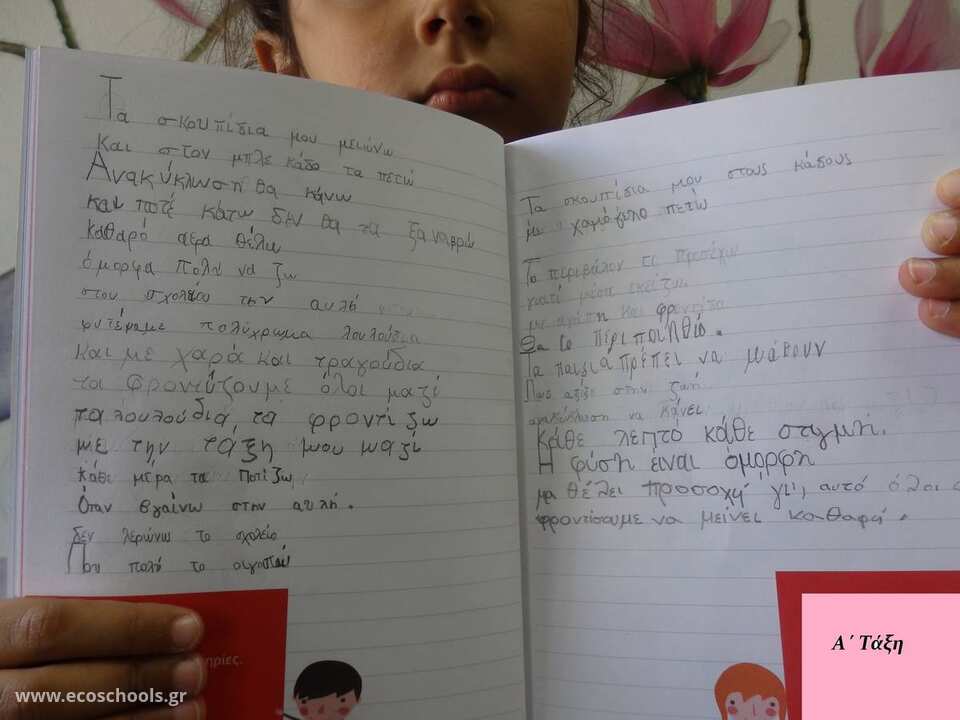 Τα σκουπίδια μου μειώνω
Και στον μπλε κάδο τα πετώ
Ανακύκλωση θα κάνω
και ποτέ κάτω δεν θα τα ξαναβρώ
καθαρό αέρα θέλω
όμορφα πολύ να ζω
στου σχολείου την αυλή
φυτέψαμε πολύχρωμα λουλούδια
και με χαρά και τραγούδια
τα φροντίζουμε όλοι μαζί
τα λουλούδια τα φροντίζω
με την τάξη μου μαζί
κάθε μέρα τα ποτίζω
Όταν βγαίνω στην αυλή.
δεν λερώνω το σχολείο
Που πολύ το αγαπάω
Τα σκουπίδια μου στους κάδους
με χαμόγελο πετώ
Το περιβάλον το προσέχω
γιατί μέσα εκεί ζω
με αγάπη και φροντίδα
θα το περιποιηθώ.
Τα παιδιά πρέπει να μάθουν
Πως αξίζει στην ζωή
ανακύκλωση να κάνει
κάθε λεπτό κάθε στιγμή.
Η φύση είναι όμορφη
μα θέλει προσοχή γι, αυτό όλοι
φροντίσουμε να μείνει καθαρή.
ηρίες.
Α΄ Τάξη
www.ecoschools.gr